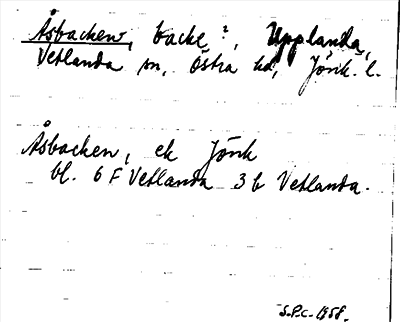 Åsbacken, backe?, Upplanda,
Vetlanda sn, Östra hd, Jönk. l.
Åsbacken, ek Jönk
bl. 6 F Vetlanda 3 b Vetlanda.
S.P.C. 1958.